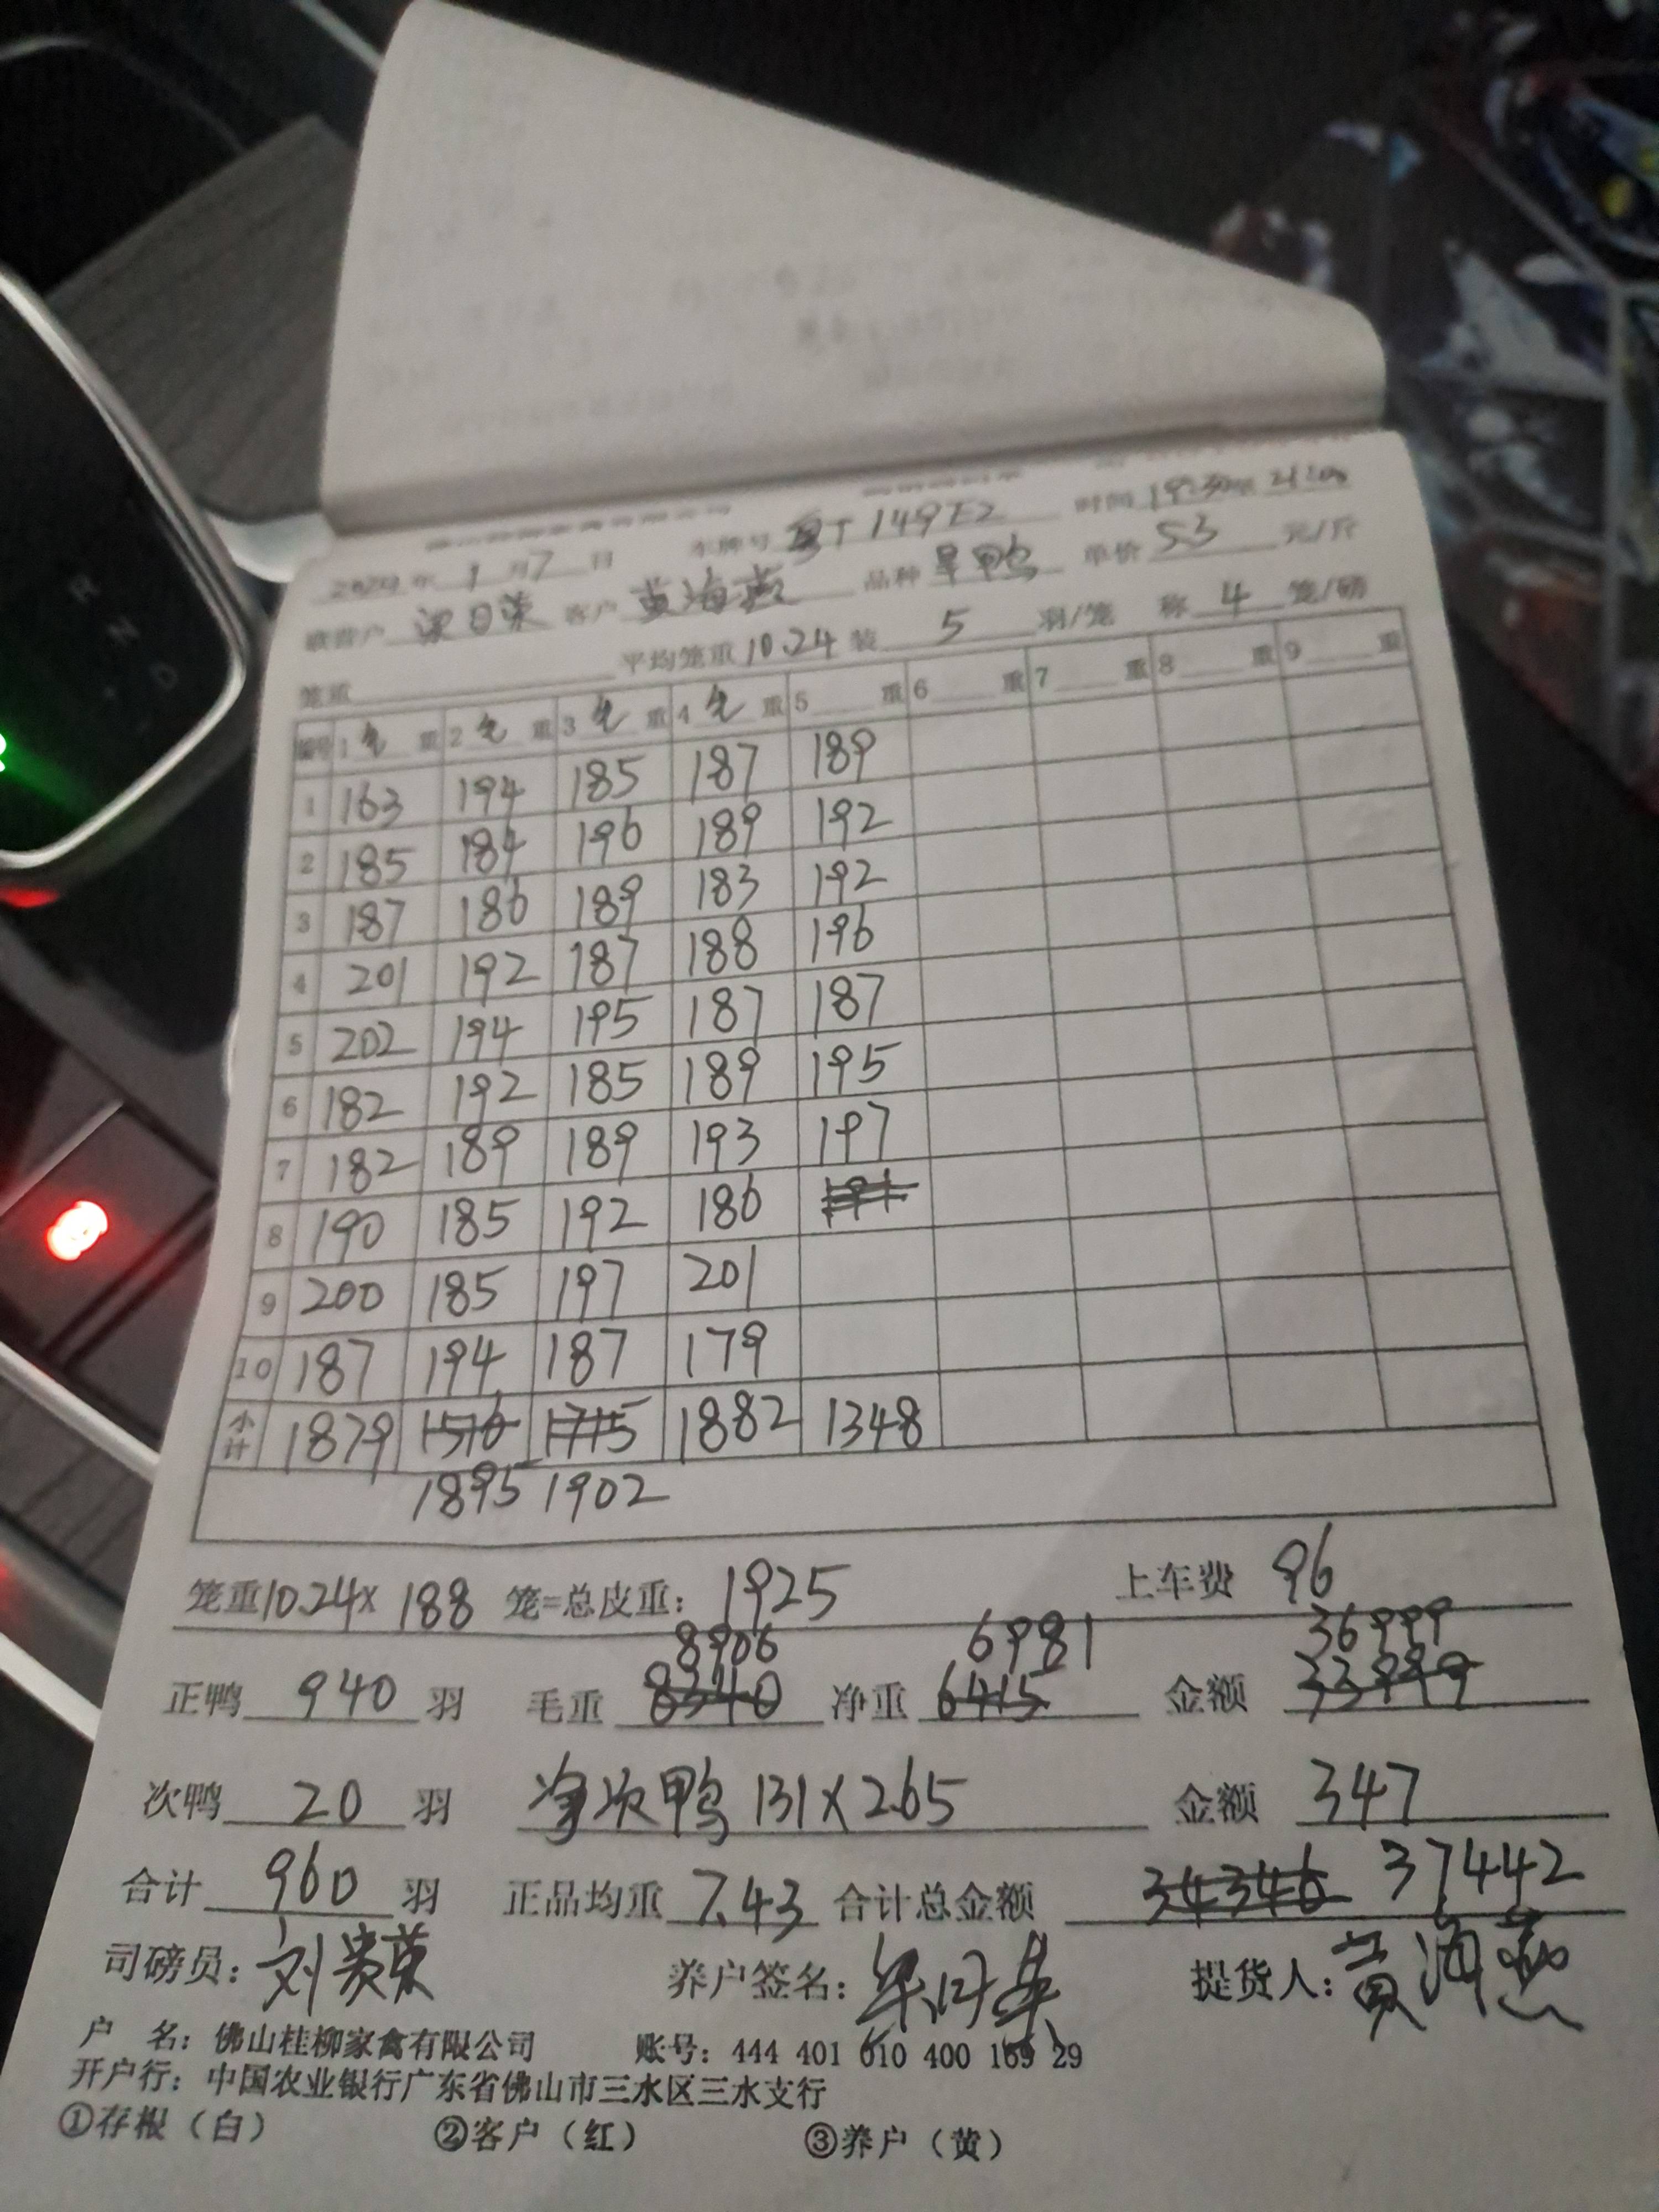 2024年 1 月 7 日 车牌号 粤T 149E2 时间 19:30至 21:00
联营户 梁日荣 客户 黄海燕 品种 旱鸭 单价 5.3 元/斤
笼重 平均笼重 10.24 装 5 羽/笼 称 4 笼/磅
编号 1 毛 重 2 毛 重 3 毛 重 4 毛 重 5 重 6 重 7 重 8 重 9 重
1 163 194 185 187 189
2 185 184 196 189 192
3 187 186 189 183 192
4 201 192 187 188 196
5 202 194 195 187 187
6 182 192 185 189 195
7 182 189 189 193 197
8 190 185 192 186 191
9 200 185 197 201
10 187 194 187 179
小计 1879 1516 1715 1882 1348
1895 1902
笼重10.24× 188 笼=总皮重: 1925 上车费 96
8906 6981 36999
正鸭 940 羽 毛重 8340 净重 6415 金额 33999
次鸭 20 羽 净次鸭 131×2.65 金额 347
合计 960 羽 正品均重 7.43 合计总金额 34346 37442
司磅员: 刘贵荣 养户签名: 梁日荣 提货人: 黄海燕
户 名: 佛山桂柳家禽有限公司 账号: 444 401 010 400 169 29
开户行: 中国农业银行广东省佛山市三水区三水支行
①存根（白） ②客户（红） ③养户（黄）